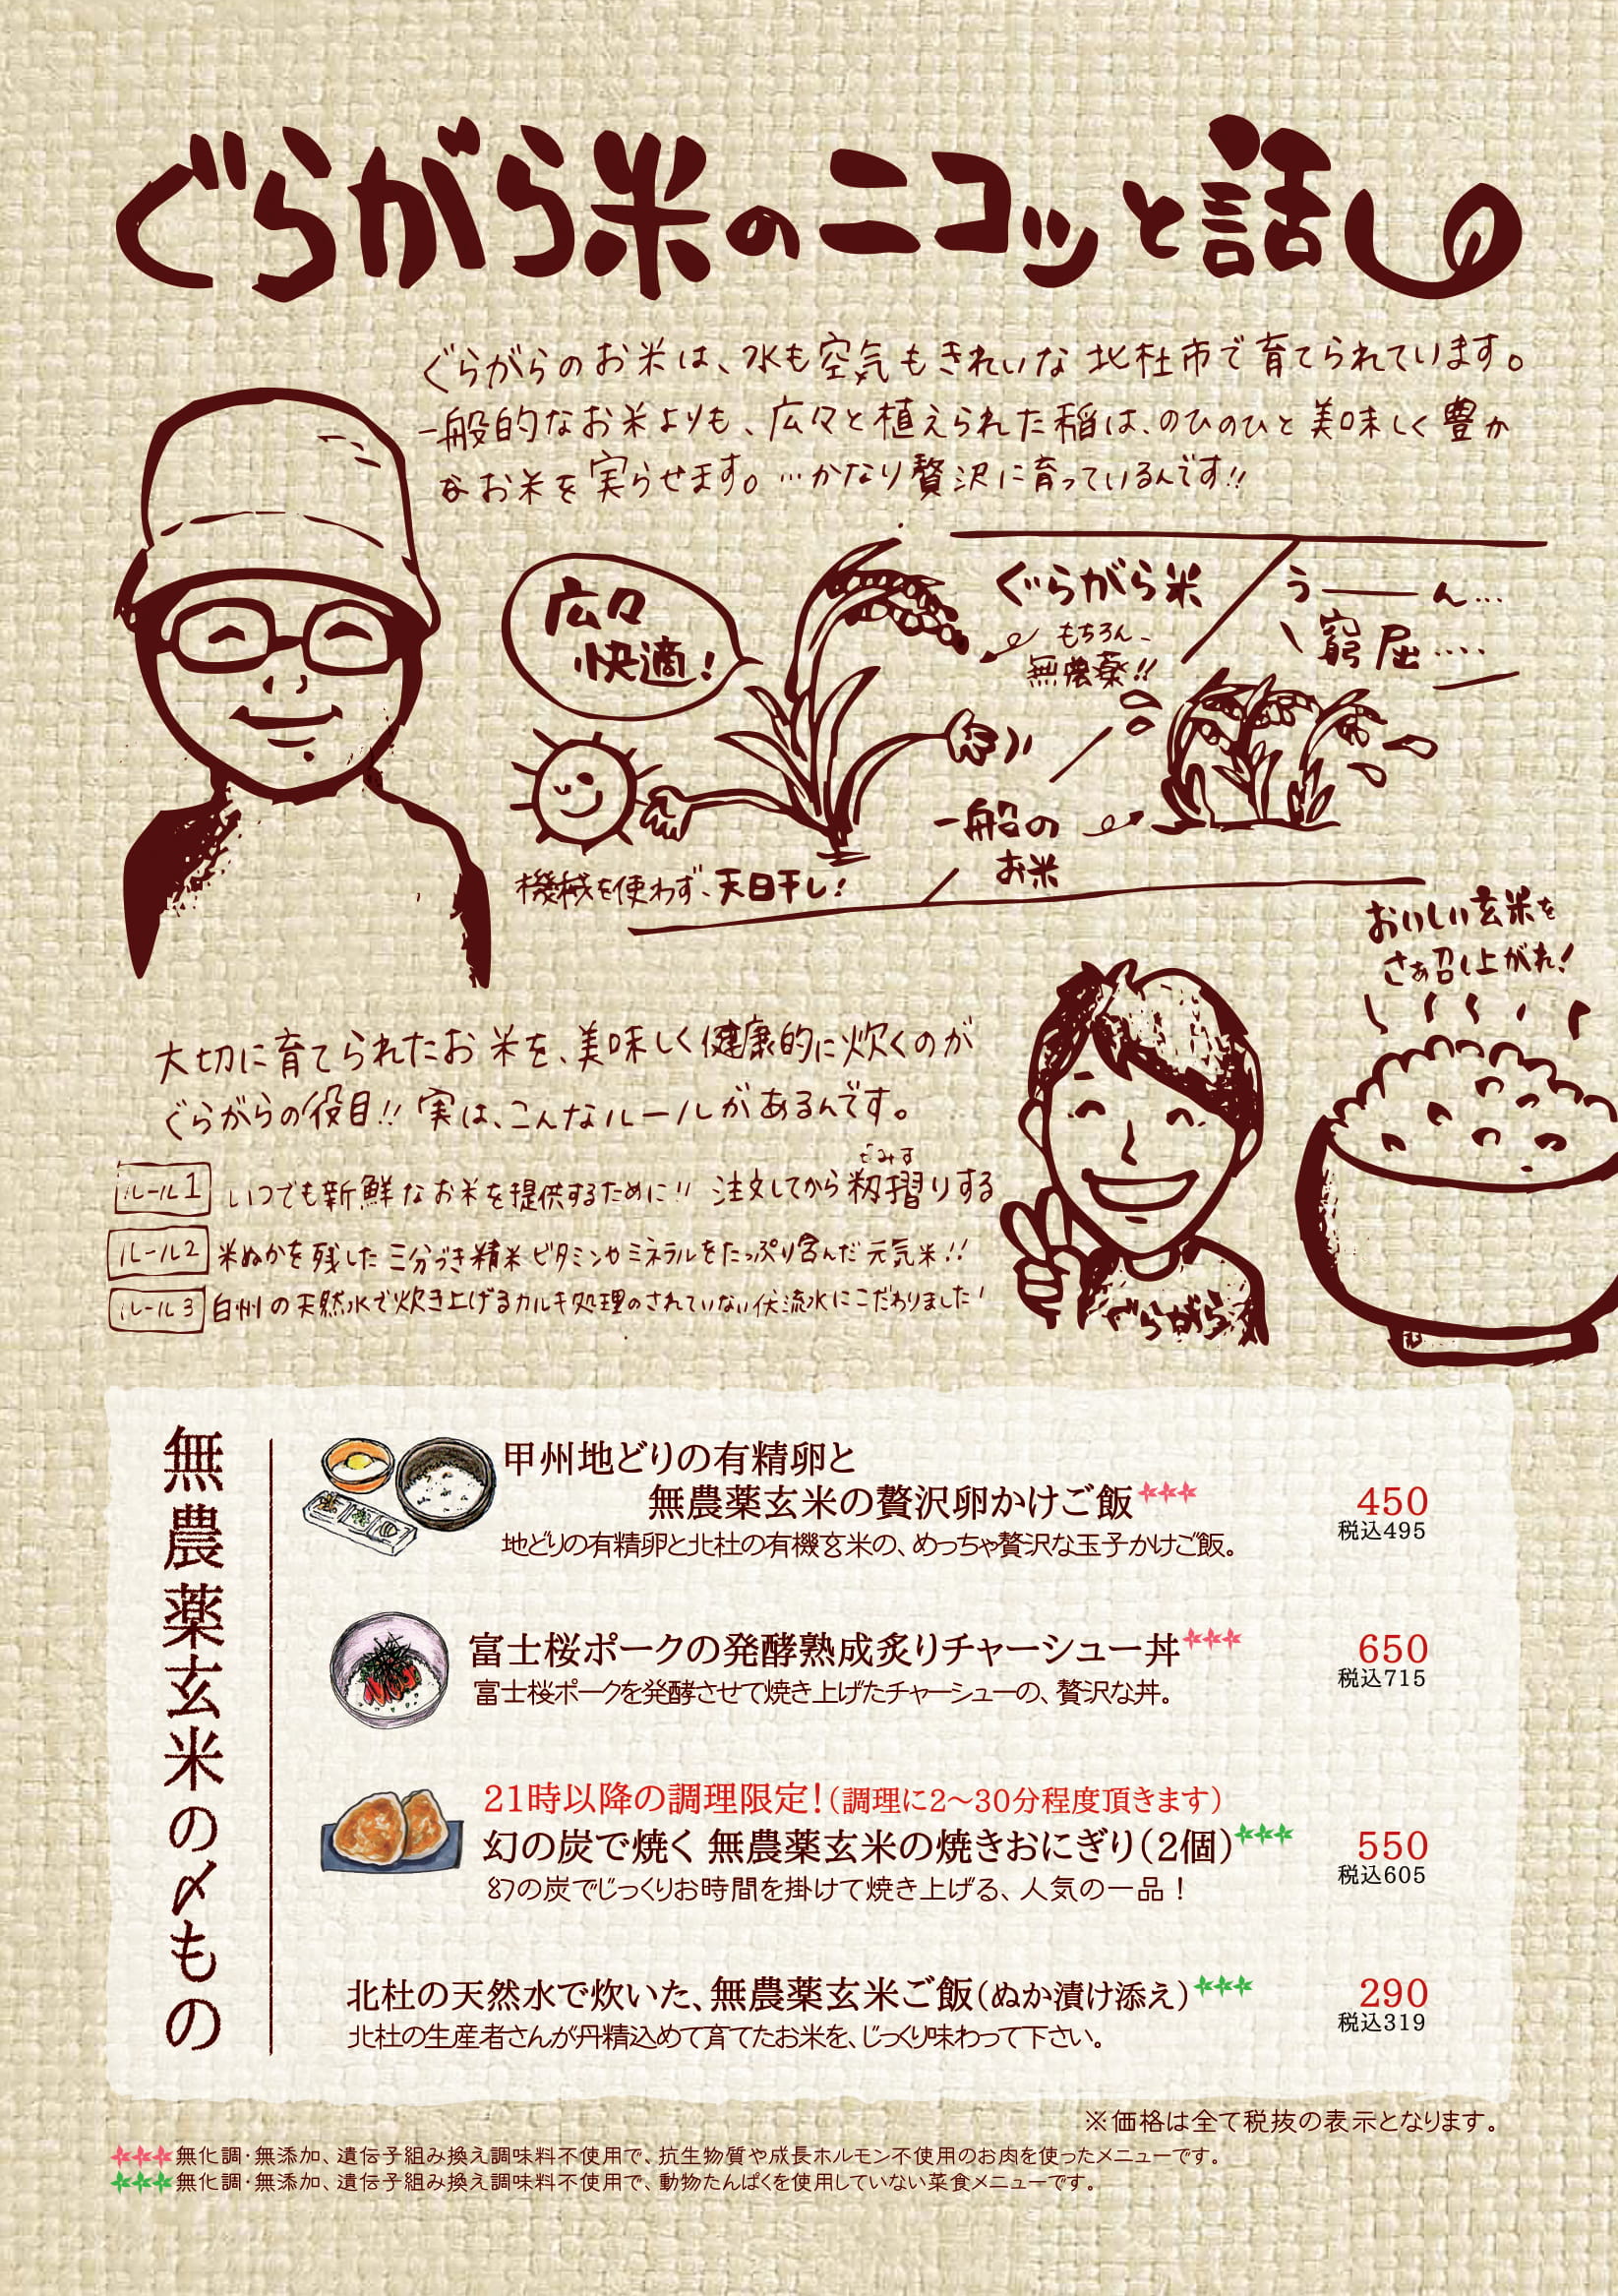 ぐらがら米のニコッと話し
ぐらがらのお米は、水も空気もきれいな北杜市で育てられています。
一般的なお米よりも、広々と植えられた稲は、のびのびと美味しく豊か
なお米を実らせます。…かなり贅沢に育っているんです!!
広々
快適!
ぐらがら米
もちろん、
無農薬!!
うーーん…
窮屈….
一般の
お米
機械を使わず、天日干し!
おいしい玄米を
さぁ召し上がれ!
大切に育てられたお米を、美味しく健康的に炊くのが
ぐらがらの役目!! 実は、こんなルールがあるんです。
ルール1 いつでも新鮮なお米を提供するために!! 注文してから籾摺りする
ルール2 米ぬかを残した三分づき精米 ビタミンやミネラルをたっぷり含んだ元気米!!
ルール3 白州の天然水で炊き上げるカルキ処理のされていない伏流水にこだわりました!
ぐらがら
無農薬玄米の〆もの
甲州地どりの有精卵と
無農薬玄米の贅沢卵かけご飯 450
税込495
地どりの有精卵と北杜の有機玄米の、めっちゃ贅沢な玉子かけご飯。
富士桜ポークの発酵熟成炙りチャーシュー丼 650
税込715
富士桜ポークを発酵させて焼き上げたチャーシューの、贅沢な丼。
21時以降の調理限定!(調理に2〜30分程度頂きます)
幻の炭で焼く 無農薬玄米の焼きおにぎり(2個) 550
税込605
幻の炭でじっくりお時間を掛けて焼き上げる、人気の一品!
北杜の天然水で炊いた、無農薬玄米ご飯(ぬか漬け添え) 290
税込319
北杜の生産者さんが丹精込めて育てたお米を、じっくり味わって下さい。
※価格は全て税抜の表示となります。
無化調・無添加、遺伝子組み換え調味料不使用で、抗生物質や成長ホルモン不使用のお肉を使ったメニューです。
無化調・無添加、遺伝子組み換え調味料不使用で、動物たんぱくを使用していない菜食メニューです。